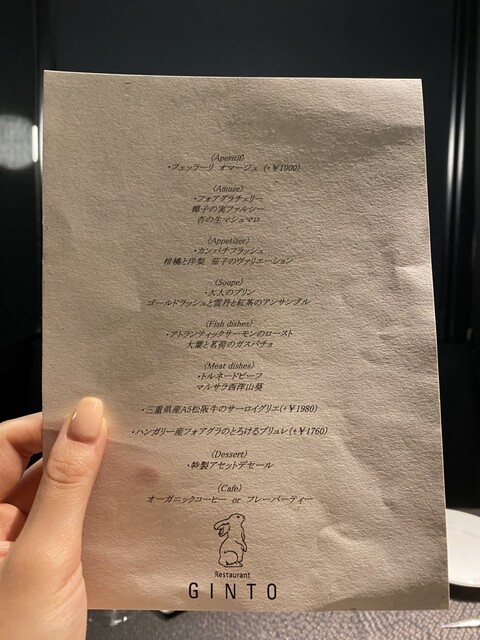 (Aperitif)
・フェッラーリ オマージュ (+￥1000)
(Amuse)
・フォアグラチェリー
椰子の実ファルシー
杏の生マシュマロ
(Appetizer)
・カンパチフラッシュ
柑橘と洋梨 茄子のヴァリエーション
(Soupe)
・大人のプリン
ゴールドラッシュと雲丹と紅茶のアンサンブル
(Fish dishes)
・アトランティックサーモンのロースト
大葉と茗荷のガスパチョ
(Meat dishes)
・トルネードビーフ
マルサラ西洋山葵
・三重県産A5松阪牛のサーロイグリエ(+￥1980)
・ハンガリー産フォアグラのとろけるブリュレ(+￥1760)
(Dessert)
・特製アセットデセール
(Cafe)
オーガニックコーヒー or フレーバーティー
Restaurant
GINTO